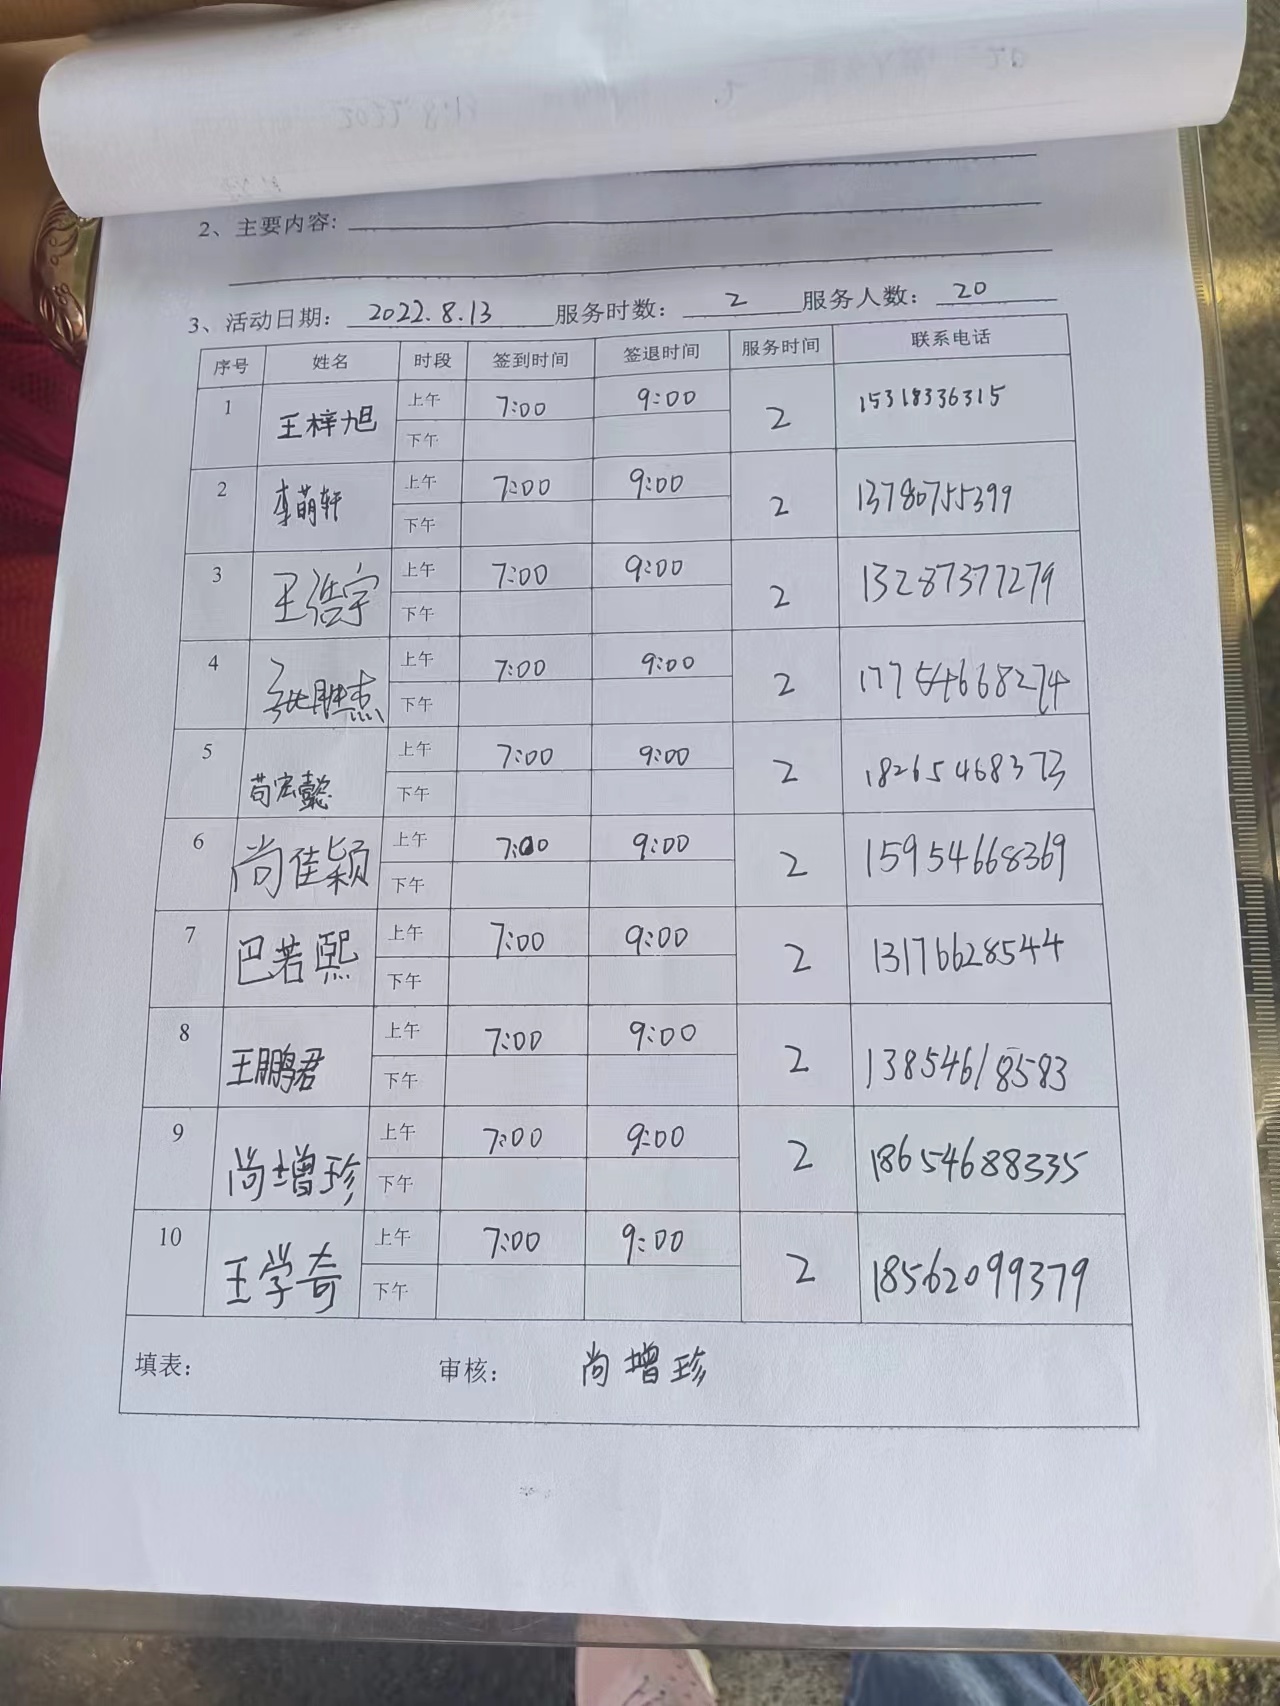 2、主要内容:
3、活动日期: 2022.8.13 服务时数: 2 服务人数: 20
序号 姓名 时段 签到时间 签退时间 服务时间 联系电话
1 王梓旭 上午 7:00 9:00 2 15318336315
下午
2 李萌轩 上午 7:00 9:00 2 13780755399
下午
3 王浩宇 上午 7:00 9:00 2 13287377279
下午
4 张胜杰 上午 7:00 9:00 2 17754668274
下午
5 苟宏懿 上午 7:00 9:00 2 18265468373
下午
6 尚佳颖 上午 7:00 9:00 2 15954668369
下午
7 巴若熙 上午 7:00 9:00 2 13176628544
下午
8 王鹏君 上午 7:00 9:00 2 13854618583
下午
9 尚增珍 上午 7:00 9:00 2 18654688335
下午
10 王学奇 上午 7:00 9:00 2 18562099379
下午
填表: 审核: 尚增珍